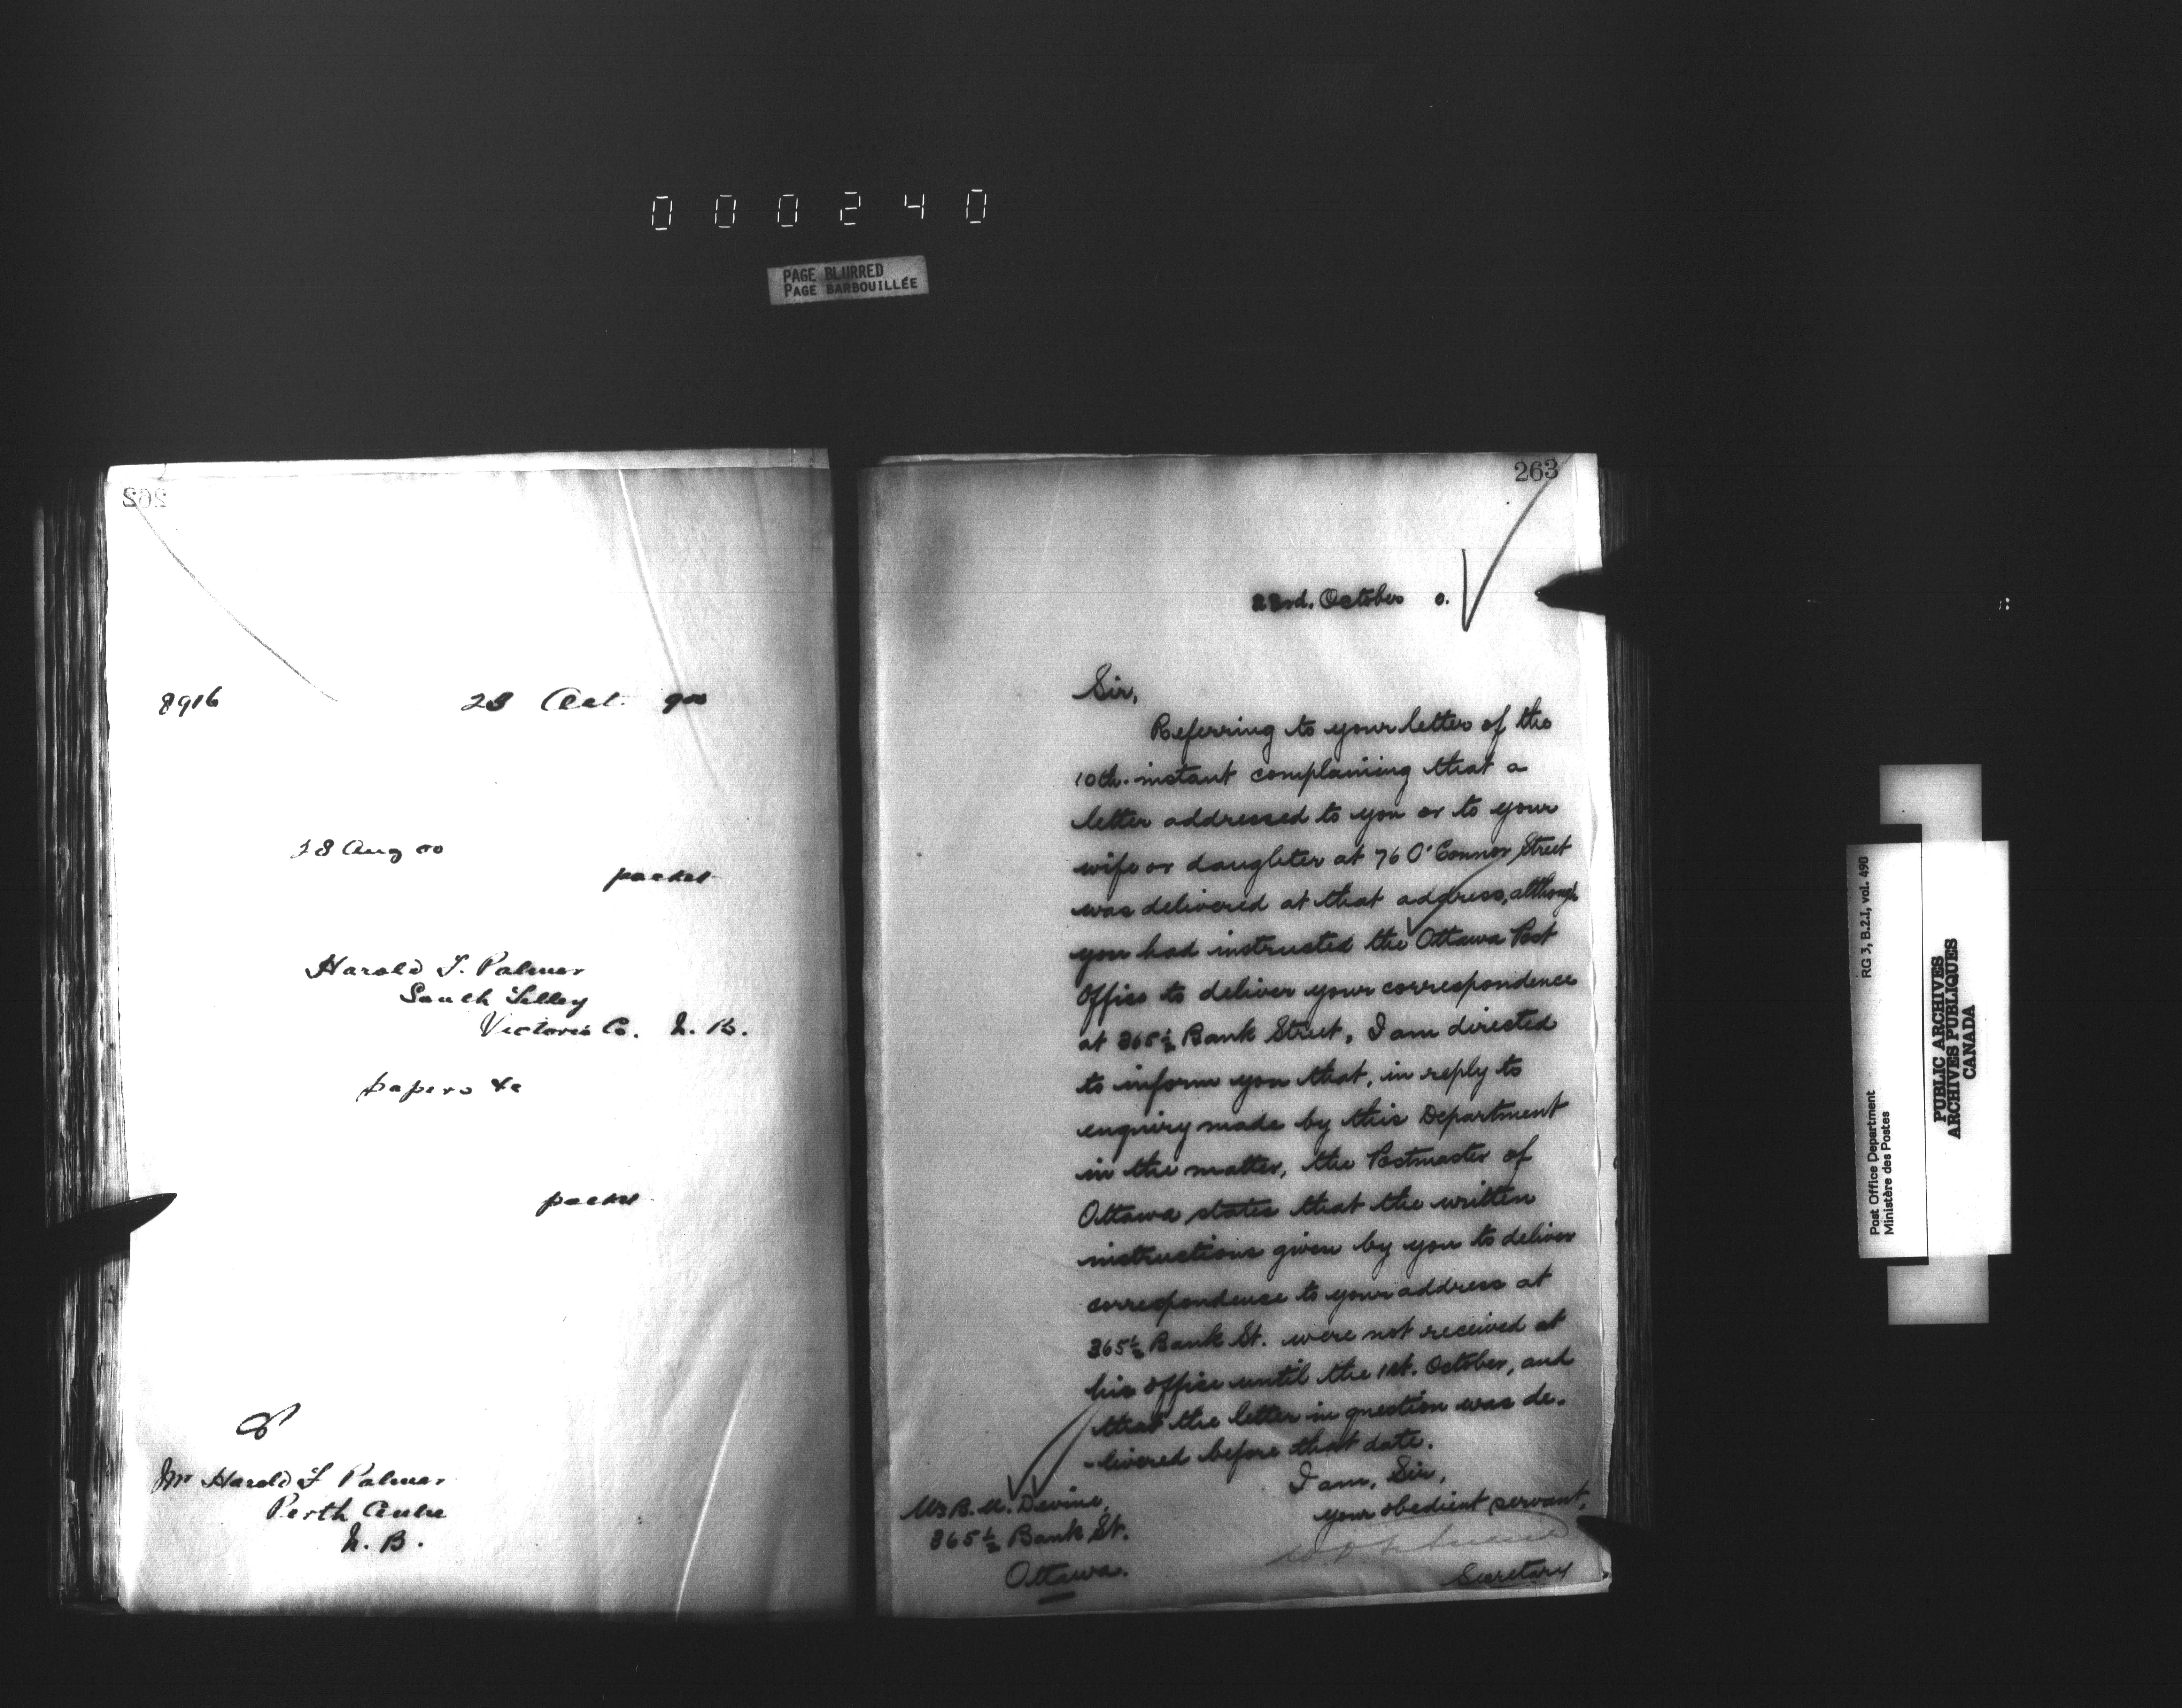 000240
PAGE BLURRED
PAGE BARBOUILLÉE
262
8916 23 Oct 900
28 Aug 00
packet
Harold F. Palmer
South Tilley
Victoria Co. N. B.
papers &c
packet
Mr Harold F Palmer
Perth Centre
N. B.
263
23rd. October 0.
Sir,
Referring to your letter of the
10th. instant complaining that a
letter addressed to you or to your
wife or daughter at 76 O'Connor Street
was delivered at that address, although
you had instructed the Ottawa Post
Office to deliver your correspondence
at 365½ Bank Street, I am directed
to inform you that, in reply to
enquiry made by this Department
in the matter, the Postmaster of
Ottawa states that the written
instructions given by you to deliver
correspondence to your address at
365½ Bank St. were not received at
his office until the 1st. October, and
that the letter in question was de-
-livered before that date.
I am, Sir,
your obedient servant,
Secretary
Devine,
365½ Bank St.
Ottawa.
RG 3, B.2.1, vol. 490
Post Office Department
Ministère des Postes
PUBLIC ARCHIVES
ARCHIVES PUBLIQUES
CANADA